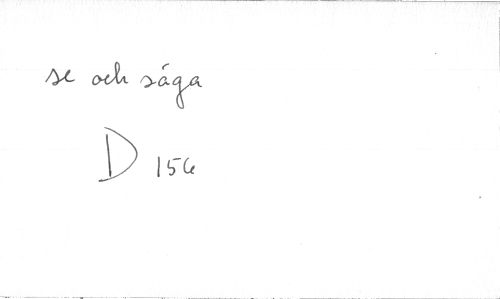 se och säga
D 156